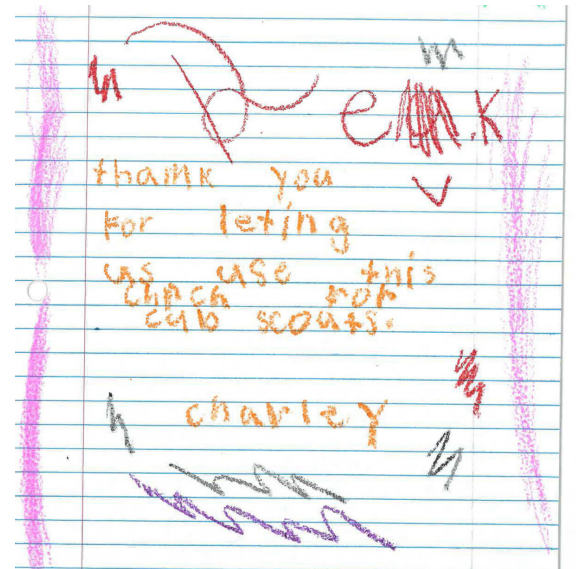 thank you
For leting
us use this
chrch for
cub scouts.
charley